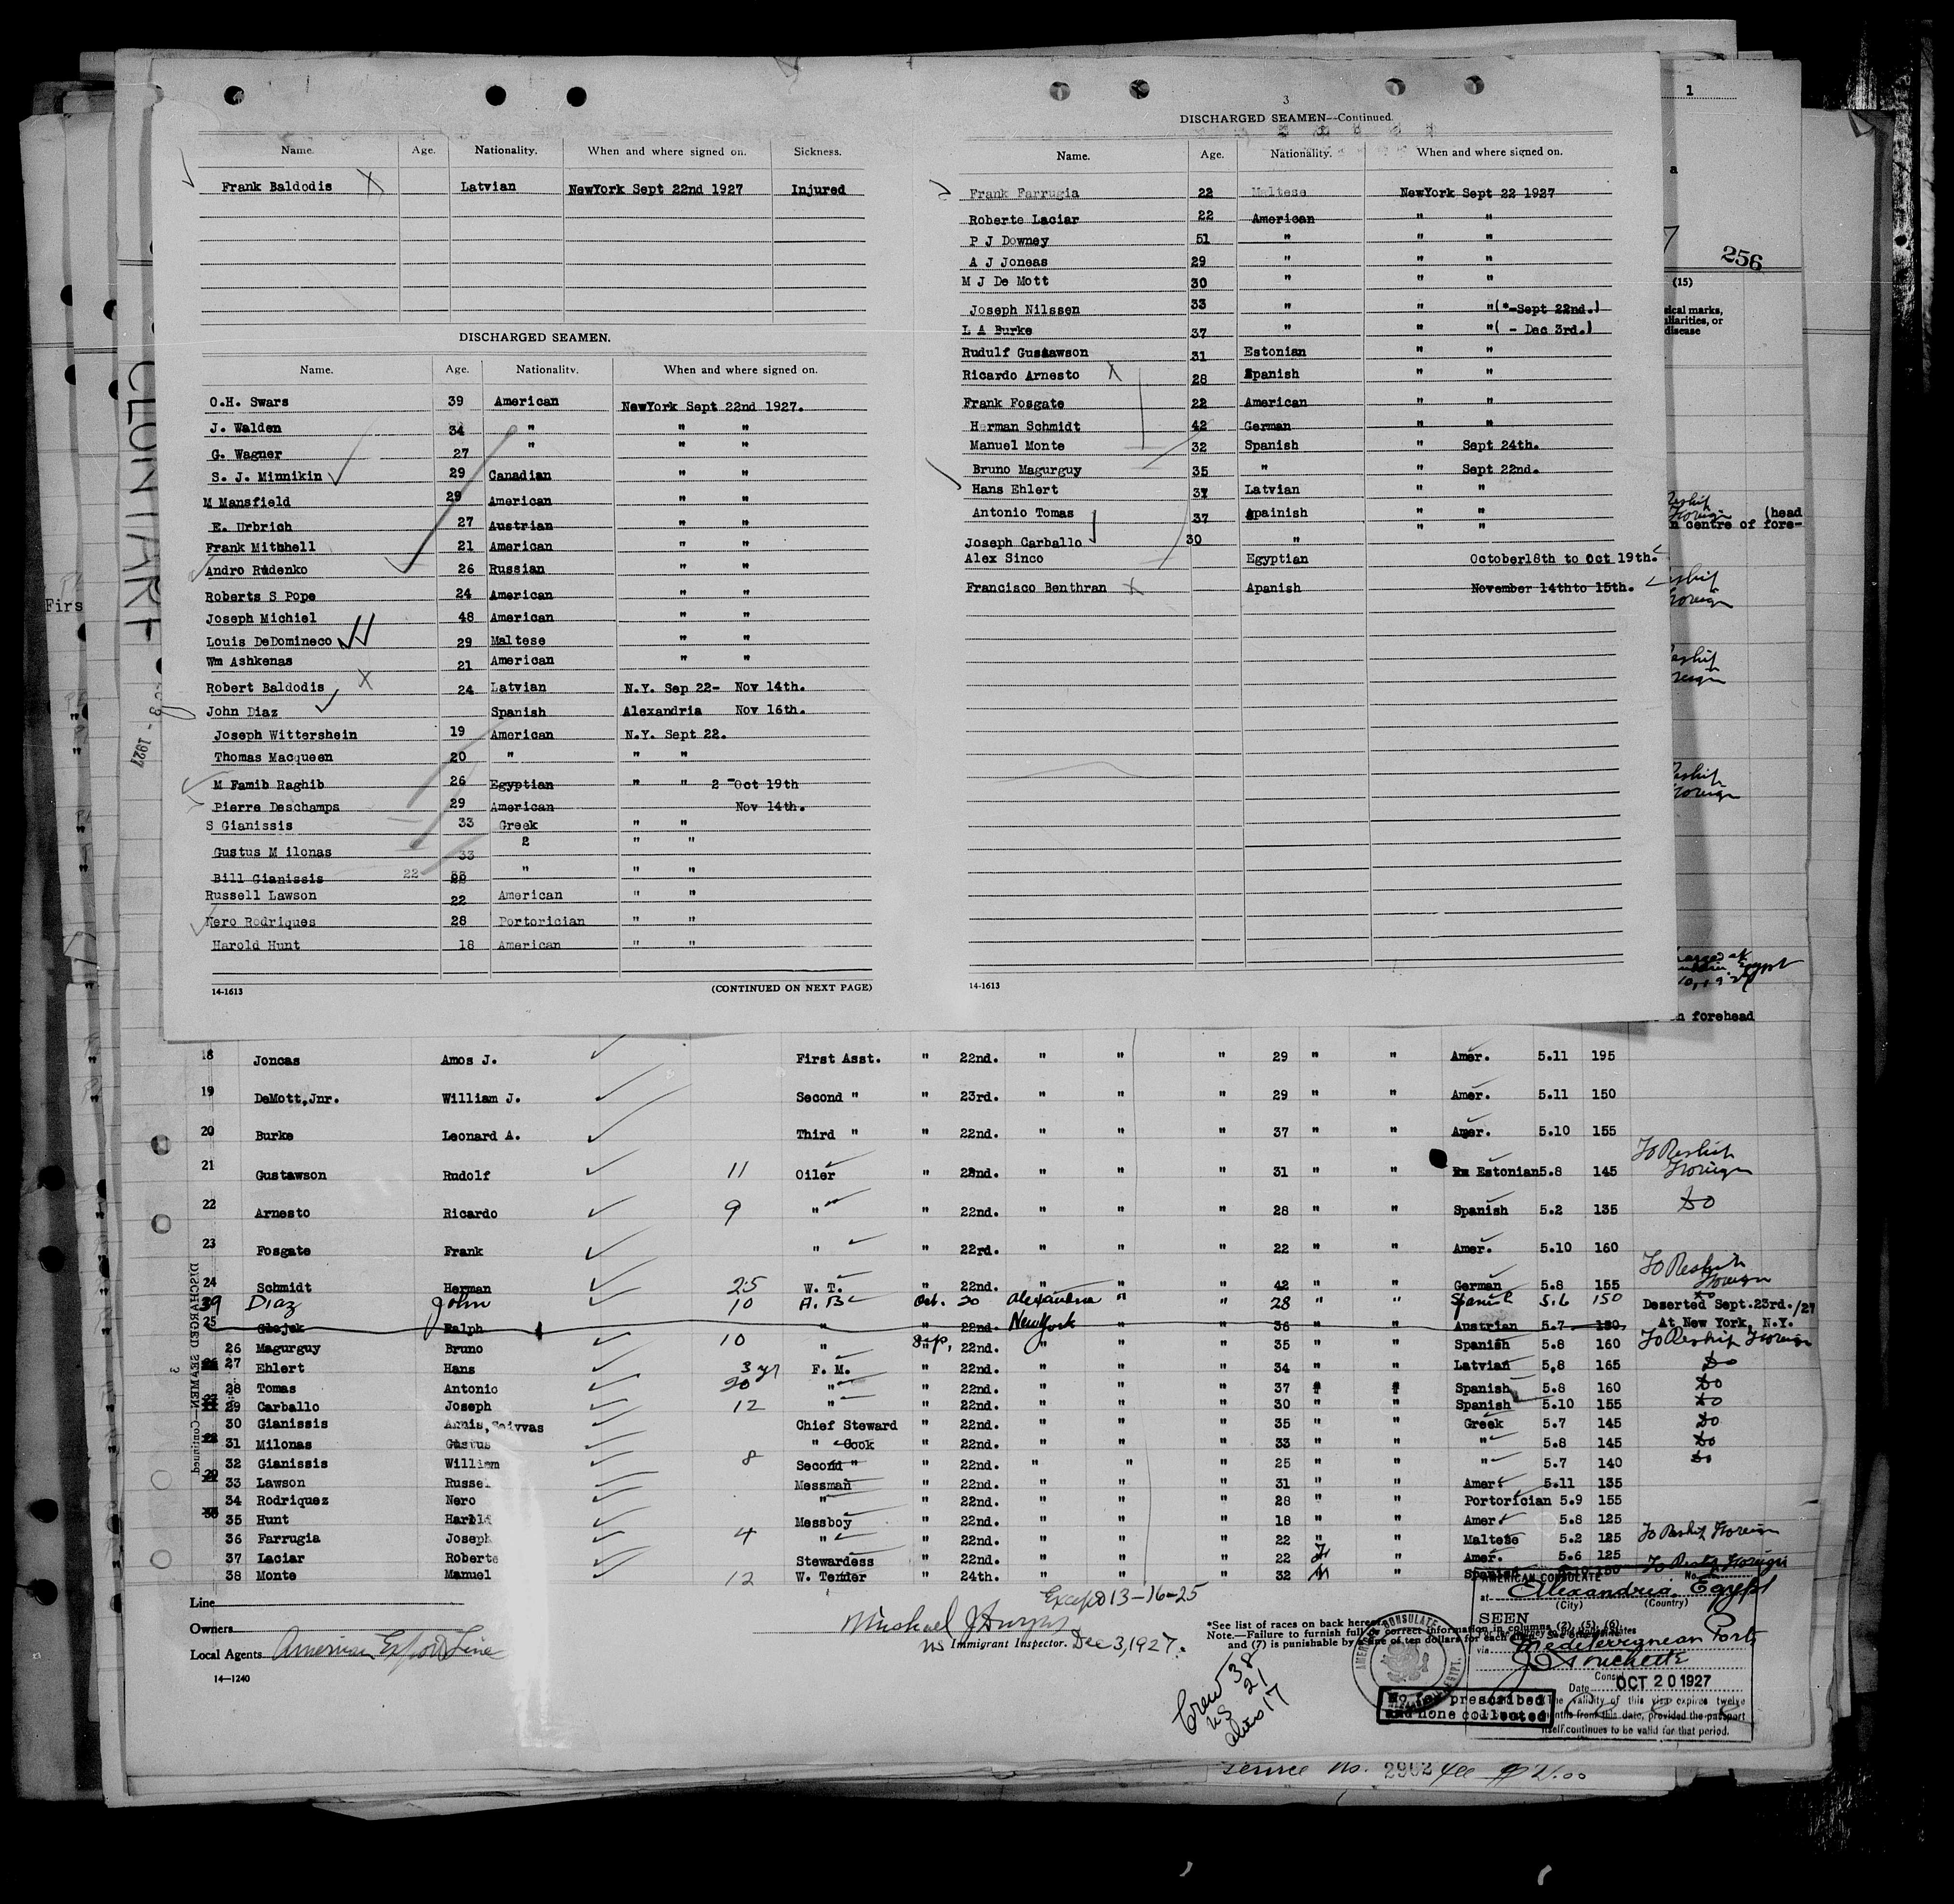 Name. Age. Nationality. When and where signed on. Sickness.
Frank Baldodis X Latvian NewYork Sept 22nd 1927 Injured
DISCHARGED SEAMEN.
Name. Age. Nationality. When and where signed on.
O.H. Swars 39 American NewYork Sept 22nd 1927.
J. Walden 34 " " "
G. Wagner 27 " " "
S. J. Minnikin 29 Canadian " "
M Mansfield 29 American " "
E. Urbrich 27 Austrian " "
Frank Mithhell 21 American " "
Andro Rudenko 26 Russian " "
Roberts S Pope 24 American " "
Joseph Michiel 48 American " "
Louis DeDomineco 29 Maltese " "
Wm Ashkenas 21 American " "
Robert Baldodis X 24 Latvian N.Y. Sep 22- Nov 14th.
John Diaz Spanish Alexandria Nov 16th.
Joseph Wittershein 19 American N.Y. Sept 22.
Thomas Macqueen 20 " " "
M Famib Raghib 26 Egyptian " " 2 -Oct 19th
Pierre Deschamps 29 American Nov 14th.
S Gianissis 33 Greek " "
Gustus M ilonas 33 2 " "
Bill Gianissis 22 " " "
Russell Lawson 22 American " "
Nero Rodriques 28 Portorician " "
Harold Hunt 18 American " "
14-1613 (CONTINUED ON NEXT PAGE)
3
DISCHARGED SEAMEN—Continued.
Name. Age. Nationality. When and where signed on.
Frank Farrugia 22 Maltese NewYork Sept 22 1927
Roberte Laciar 22 American " "
P J Downey 51 " " "
A J Joneas 29 " " "
M J De Mott 30 " " "
Joseph Nilssen 33 " " "(*-Sept 22nd.)
L A Burke 37 " " "( - Dec 3rd.)
Rudulf Gustawson 31 Estonian " "
Ricardo Arnesto X 28 Spanish " "
Frank Fosgate 22 American " "
Herman Schmidt 42 German " "
Manuel Monte 32 Spanish " Sept 24th.
Bruno Magurguy 35 " " Sept 22nd.
Hans Ehlert 37 Latvian " "
Antonio Tomas 37 Apainish " "
Joseph Carballo 30 " " "
Alex Sinco Egyptian October18th to Oct 19th.
Francisco Benthran X Apanish November 14thto 15th.
14-1613
1
a
256
(15)
disease
(head
n centre of fore-
n forehead
Firs
CLONTARF
1927
18 Joncas Amos J. First Asst. " 22nd. " " " 29 " " Amer. 5.11 195
19 DeMott,Jnr. William J. Second " " 23rd. " " " 29 " " Amer. 5.11 150
20 Burke Leonard A. Third " " 22nd. " " " 37 " " Amer. 5.10 155
21 Gustawson Rudolf 11 Oiler " 22nd. " " " 31 " " Estonian 5.8 145 To Reship Foreign
22 Arnesto Ricardo 9 " " 22nd. " " " 28 " " Spanish 5.2 135 Do
23 Fosgate Frank " " 22rd. " " " 22 " " Amer. 5.10 160
24 Schmidt Herman 25 W. T. " 22nd. " " " 42 " " German 5.8 155 To Reship Foreign
39 Diaz John 10 A. B. Oct. 20 Alexandria " " 28 " " Spanish 5.6 150 Do
25 Ralph " " 22nd. New York " " 36 " " Austrian 5.7 130 Deserted Sept.23rd./27 At New York, N.Y.
26 Magurguy Bruno 10 " Sep, 22nd. " " " 35 " " Spanish 5.8 160 To Reship Foreign
27 Ehlert Hans 3 yr F. M. " 22nd. " " " 34 " " Latvian 5.8 165 Do
28 Tomas Antonio 20 " " 22nd. " " " 37 " " Spanish 5.8 160 Do
29 Carballo Joseph 12 " " 22nd. " " " 30 " " Spanish 5.10 155 Do
30 Gianissis Chief Steward " 22nd. " " " 35 " " Greek 5.7 145 Do
31 Milonas Gustus " Cook " 22nd. " " " 33 " " " 5.8 145 Do
32 Gianissis William 8 Second " " 22nd. " " " 25 " " " 5.7 140 Do
33 Lawson Russel Messman " 22nd. " " " 31 " " Amer 5.11 135
34 Rodriquez Nero " " 22nd. " " " 28 " " Portorician 5.9 155
35 Hunt Harold Messboy " 22nd. " " " 18 " " Amer 5.8 125
36 Farrugia Joseph 4 " " 22nd. " " " 22 " " Maltese 5.2 125 To Reship Foreign
37 Laciar Roberte Stewardess " 22nd. " " " 22 F " Amer. 5.6 125
38 Monte Manuel 12 W. Tender " 24th. " " " 32 M " Spanish 5.10 150 To Reship Foreign
DISCHARGED SEAMEN—Continued
3
Line
Owners
Local Agents American Export Line
14—1240
Except 13-16-25
US Immigrant Inspector. Dec 3, 1927.
*See list of races on back hereof.
Note.—Failure to furnish full or correct information in columns (2), (5), (6),
and (7) is punishable by a fine of ten dollars for each
Crew 38
US 21
aliens 17
AMERICAN CONSULATE
No.
at Alexandria, Egypt
(City) (Country)
SEEN
via Mediterranean Ports
Consul
Date OCT 20 1927
The validity of this visa expires twelve
months from this date, provided the passport
itself continues to be valid for that period.
No fee prescribed
and none collected
Service No. 2962 fee $2.00